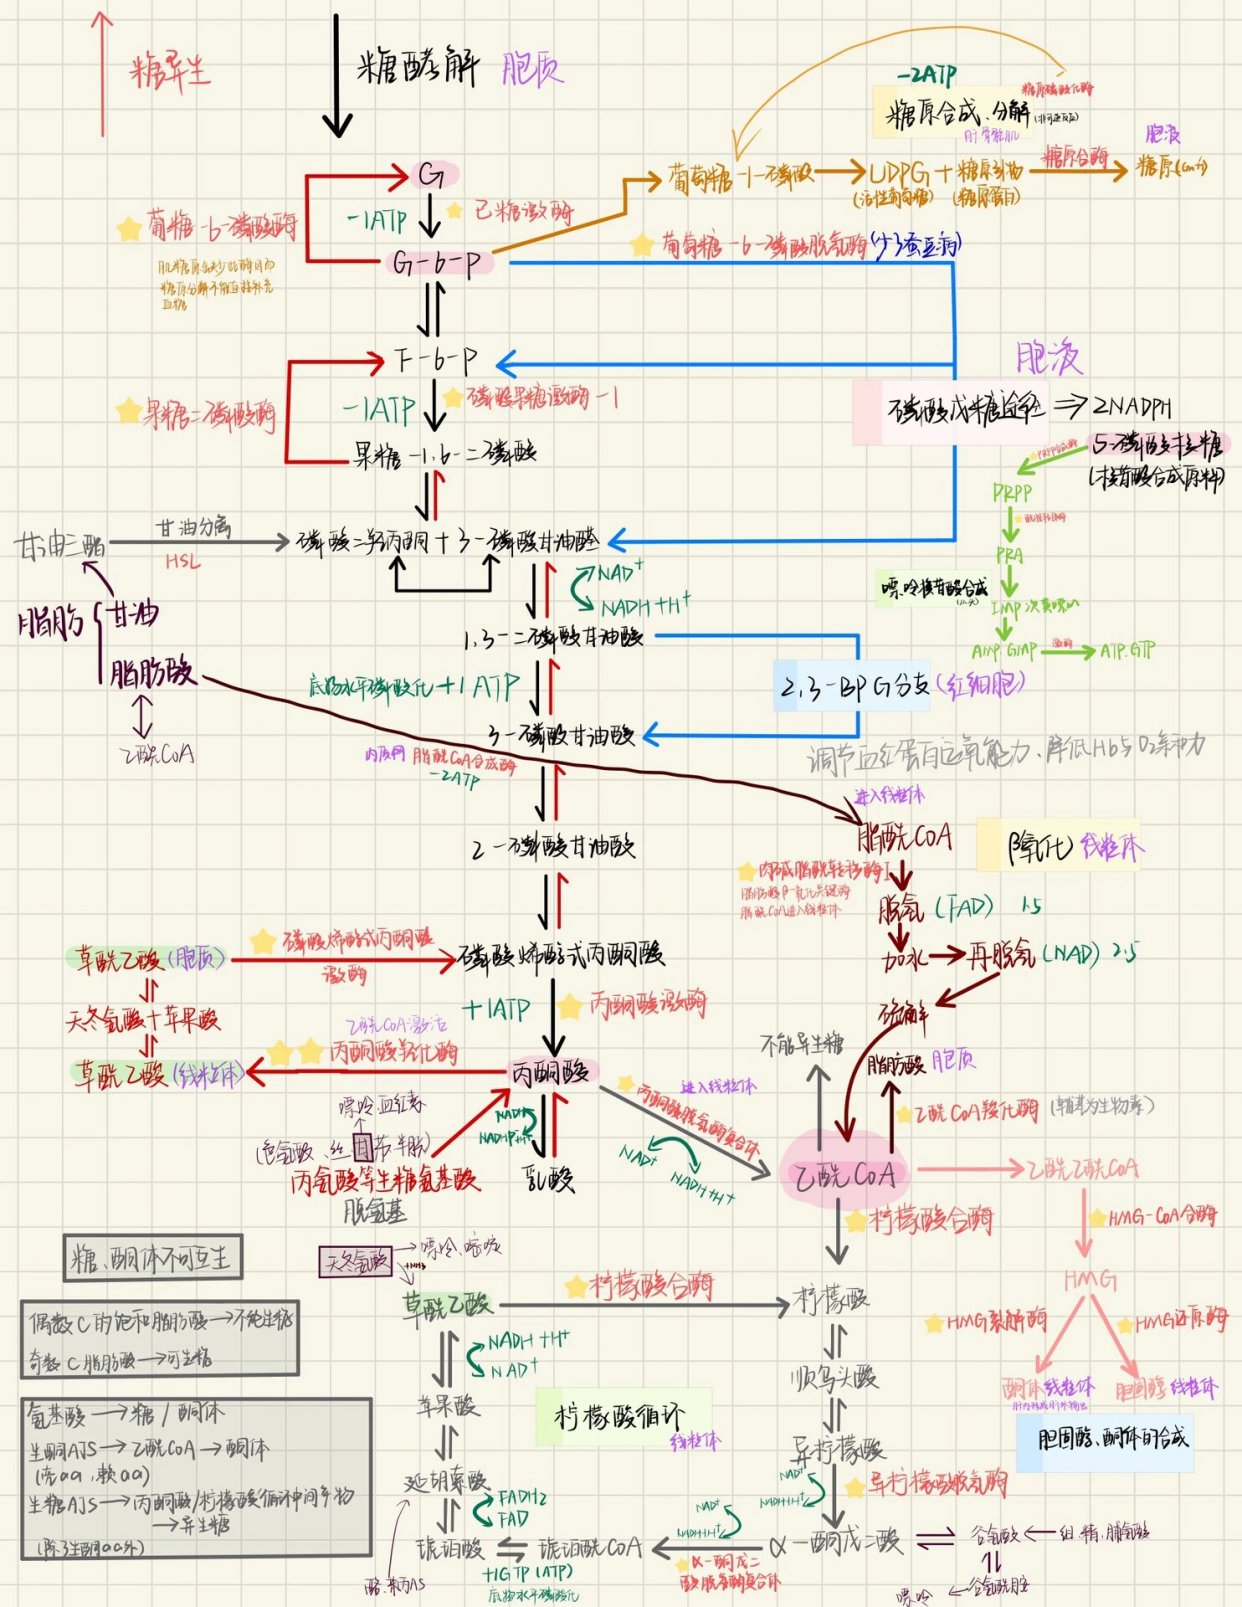 糖异生
糖酵解 胞质
-2ATP
糖原磷酸化酶
糖原合成、分解(非可逆反应)
肝、骨骼肌
胞液
G
葡萄糖-1-磷酸
UDPG + 糖原引物
(活性葡萄糖) (糖原蛋白)
糖原合酶
糖原(Gn+1)
-1ATP
己糖激酶
葡糖-6-磷酸酶
G-6-P
葡萄糖-6-磷酸脱氢酶(少→蚕豆病)
肌糖原缺少此酶因而
糖原分解不能直接补充
血糖
F-6-P
胞液
果糖二磷酸酶
-1ATP
磷酸果糖激酶-1
磷酸戊糖途径 ⇒ 2NADPH
果糖-1,6-二磷酸
5-磷酸核糖
(核苷酸合成原料)
PRPP合成酶
PRPP
甘油三酯
甘油分离
HSL
磷酸二羟丙酮+3-磷酸甘油醛
PRA
NAD+
NADH+H+
嘌呤核苷酸合成
IMP 次黄嘌呤
脂肪
甘油
脂肪酸
1,3-二磷酸甘油酸
AMP.GMP
激酶
ATP.GTP
底物水平磷酸化+1ATP
2,3-BPG分支(红细胞)
乙酰CoA
3-磷酸甘油酸
内质网 脂酰CoA合成酶
-2ATP
调节血红蛋白运氧能力、降低Hb与O2亲和力
进入线粒体
2-磷酸甘油酸
脂酰COA
β氧化 线粒体
肉碱脂酰转移酶I
脂肪酸β-氧化关键酶
脂酰CoA进入线粒体
脱氢(FAD) 1.5
草酰乙酸(胞质)
磷酸烯醇式丙酮酸
激酶
磷酸烯醇式丙酮酸
加水
再脱氢(NAD) 2.5
天冬氨酸+苹果酸
+1ATP
丙酮酸激酶
硫解
乙酰CoA激活
不能异生糖
草酰乙酸(线粒体)
丙酮酸羧化酶
丙酮酸
脂肪酸 胞质
嘌呤.血红素
进入线粒体
丙酮酸脱氢酶复合体
乙酰CoA羧化酶(辅基为生物素)
NADH
NADH+H+
(色氨酸、丝甘苏半胱)
丙氨酸等生糖氨基酸
脱氨基
乳酸
NAD+
NADH+H+
乙酰COA
乙酰乙酰CoA
柠檬酸合酶
HMG-CoA合酶
糖、酮体不可互生
天冬氨酸
嘌呤、嘧啶
+NH3
草酰乙酸
柠檬酸合酶
柠檬酸
HMG
偶数C的饱和脂肪酸→不能生糖
奇数C脂肪酸→可生糖
NADH+H+
NAD+
HMG裂解酶
HMG还原酶
顺乌头酸
酮体 线粒体
胆固醇 线粒体
苹果酸
柠檬酸循环
线粒体
胆固醇、酮体的合成
氨基酸→糖/酮体
生酮AJS→乙酰CoA→酮体
(亮aa、赖aa)
生糖AJS→丙酮酸/柠檬酸循环中间产物
→异生糖
(除了生酮aa外)
异柠檬酸
延胡索酸
NAD+
NADH+H+
异柠檬酸脱氢酶
FADH2
FAD
NAD+
NADH+H+
琥珀酸
琥珀酰COA
α-酮戊二酸
谷氨酸
组、精、脯氨酸
+1GTP(ATP)
底物水平磷酸化
α-酮戊二
酸脱氢酶复合体
谷氨酰胺
嘌呤